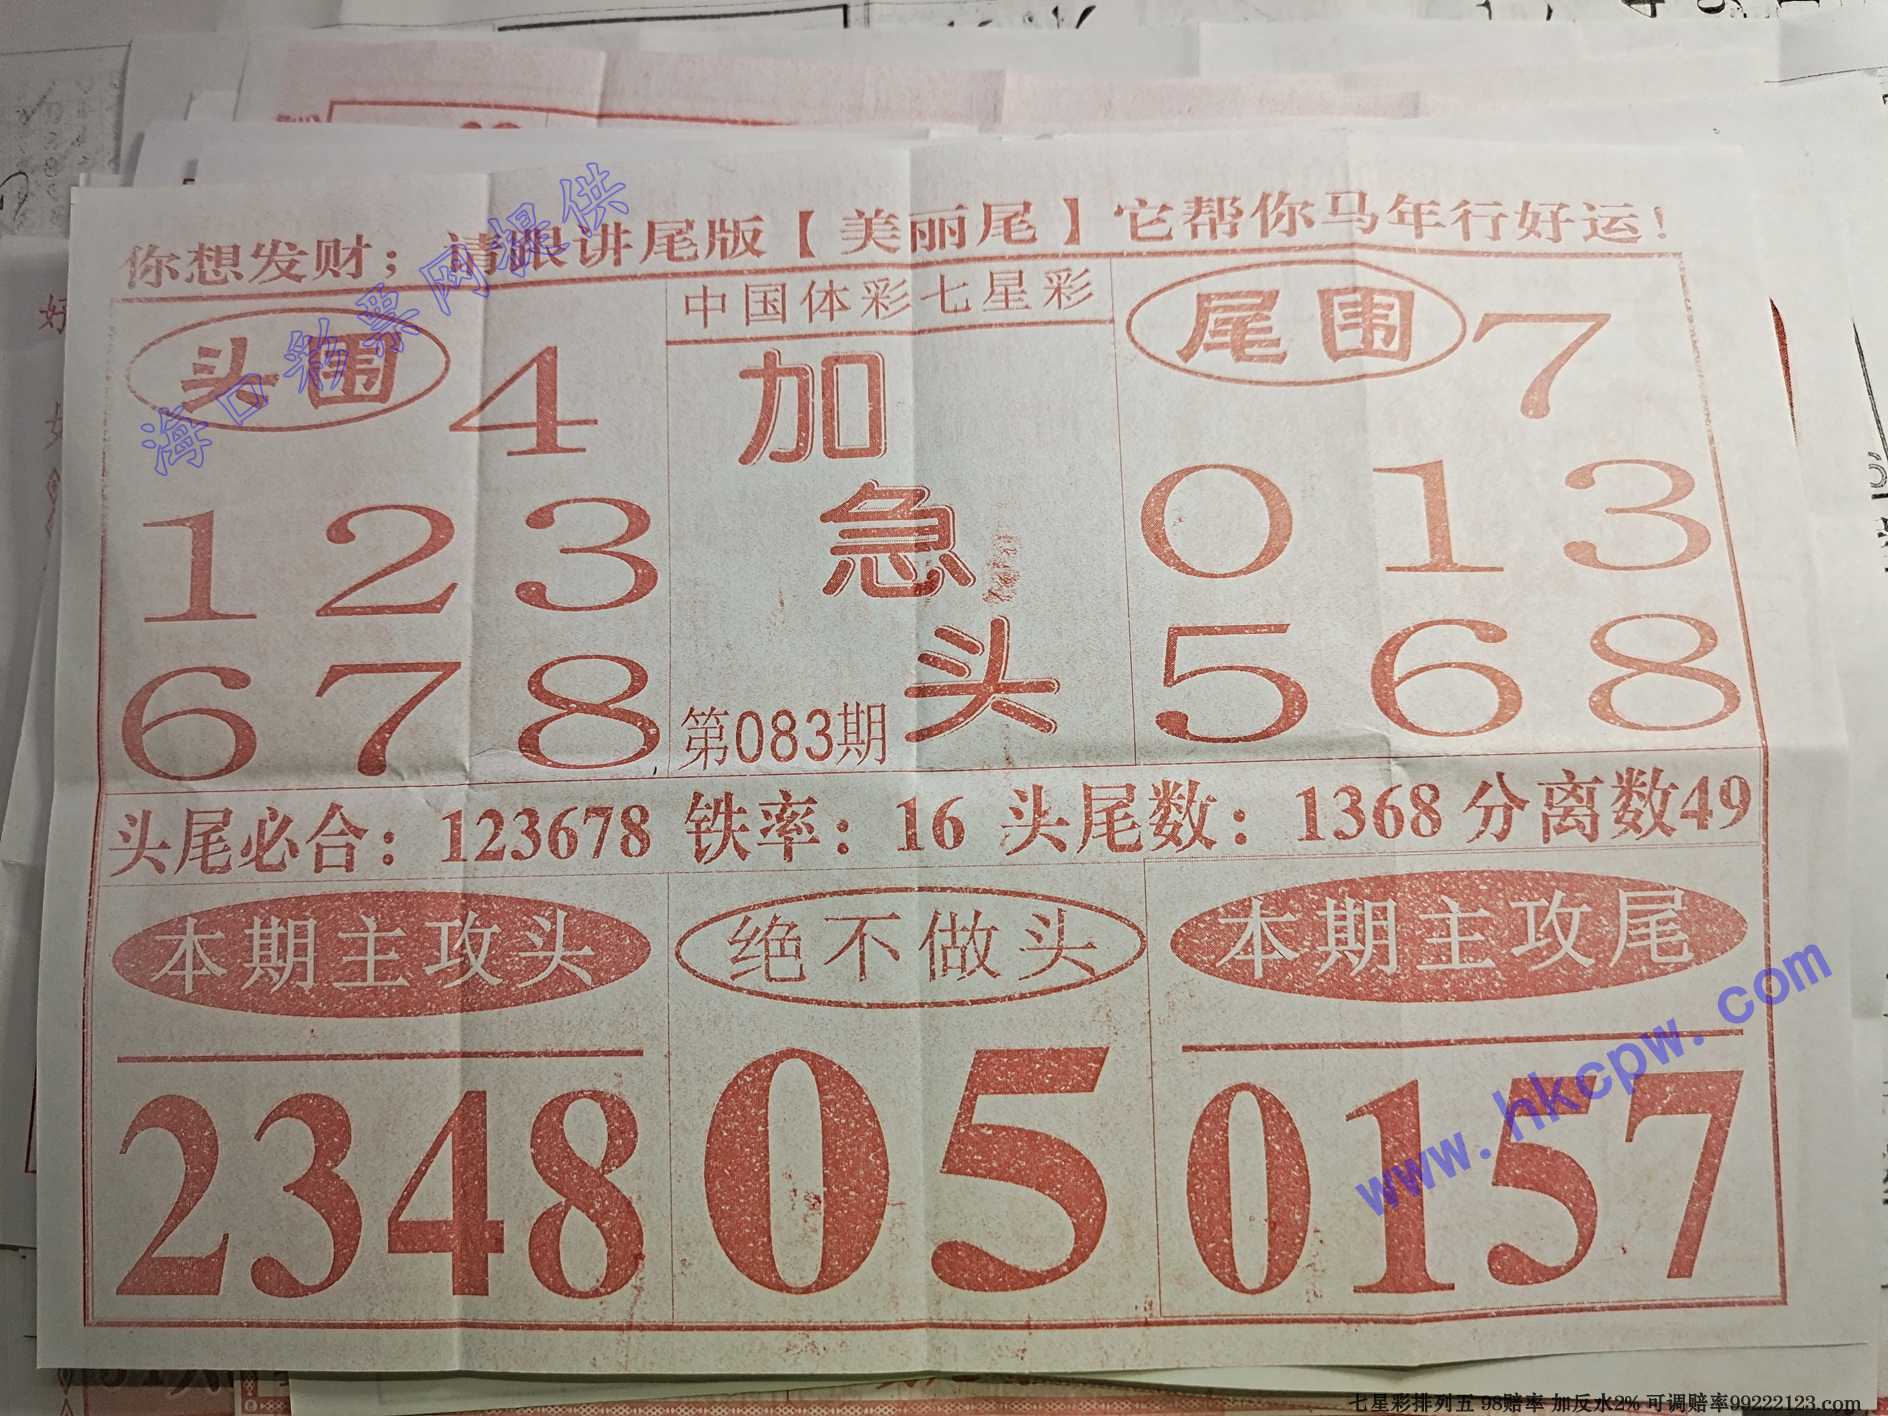 你想发财；请跟讲尾版【美丽尾】它帮你马年行好运！
头围 4
1 2 3
6 7 8
中国体彩七星彩
加
急
头
第083期
尾围 7
0 1 3
5 6 8
头尾必合：123678 铁率：16 头尾数：1368 分离数49
本期主攻头
2348
绝不做头
05
本期主攻尾
0157
海口彩票网提供
www.hkcpw.com
七星彩排列五 98赔率 加反水2% 可调赔率99222123.com